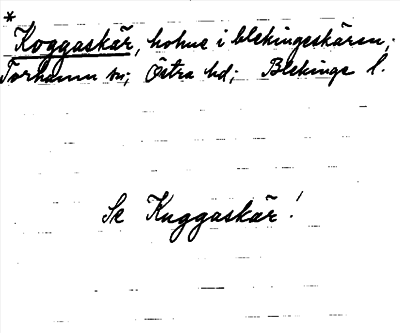 *
Koggaskär, holme i blekingeskären;
Torhamn sn; Östra hd; Blekinge l.
Se Kuggaskär!